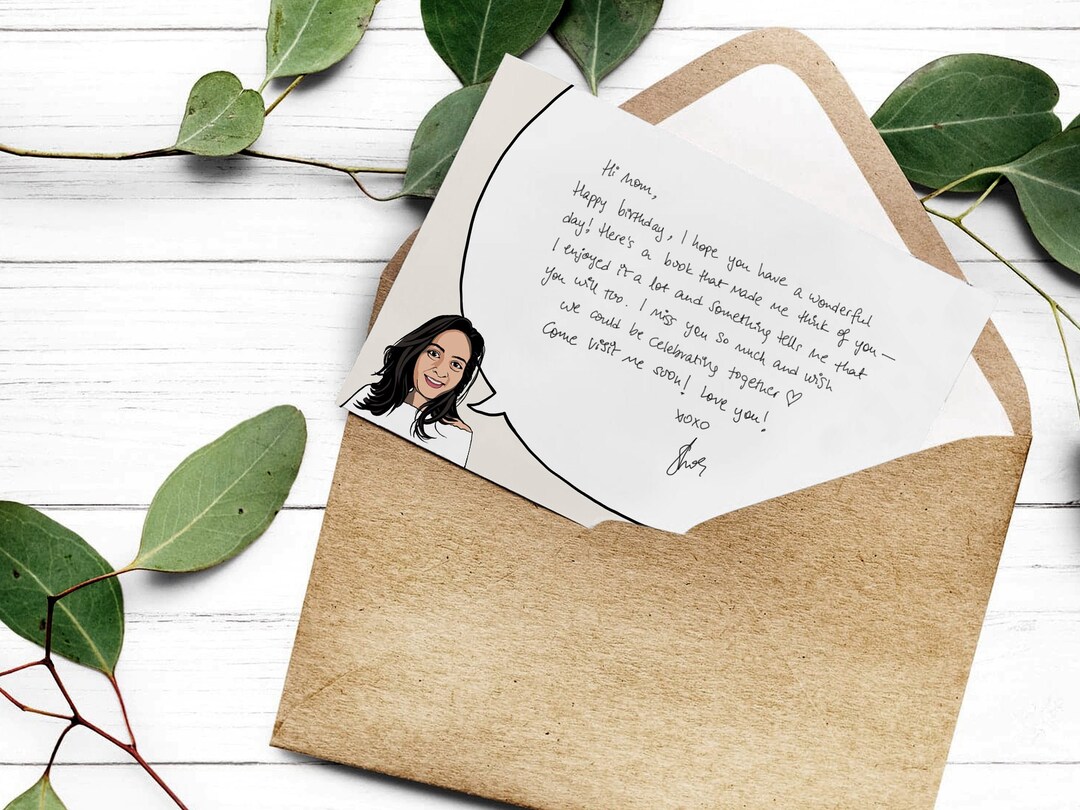 Hi Mom,
Happy birthday, I hope you have a wonderful
day! Here's a book that made me think of you —
I enjoyed it a lot and something tells me that
you will too. I miss you so much and wish
we could be celebrating together ♡
Come visit me soon! Love you!
xoxo